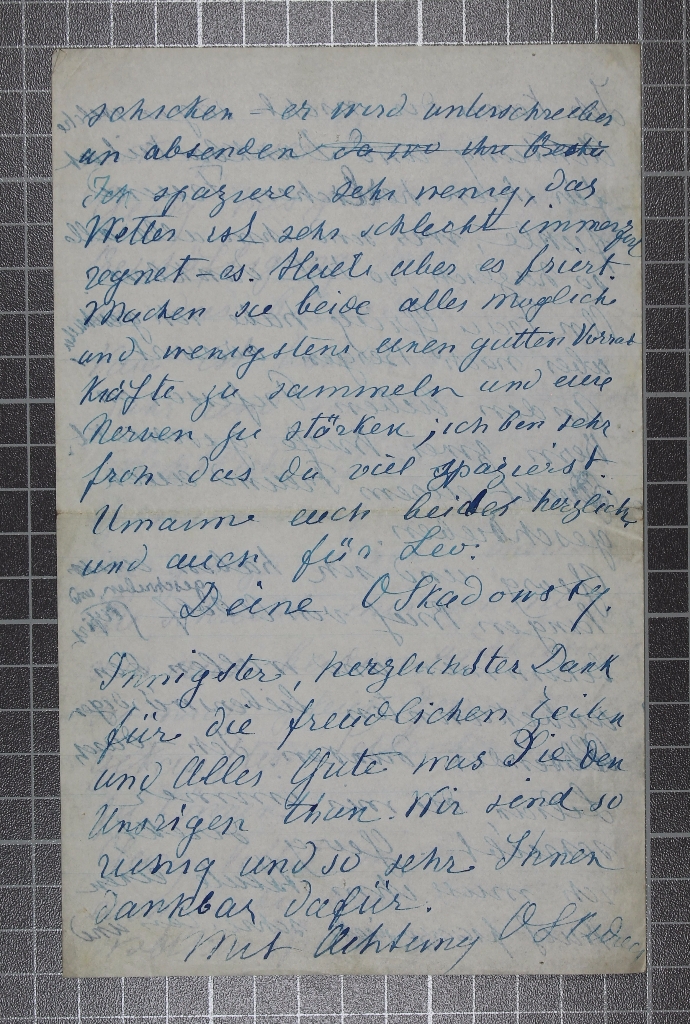 schicken – er wird unterschreiben
un absenden da wo ihre
Ich spaziere sehr wenig, das
Wetter ist sehr schlecht immerzu
regnet-es. Heute aber es friert.
Machen sie beide alles moglich
und wenigstens einen gutten Vorrat
Kräfte zu sammeln und eure
Nerven zu stärken; ich ben sehr
froh das du viel spazierst.
Umarme euch beides herzlich
und auch für Leo.
Deine OSkadowsky.
Innigster, herzlichster Dank
für die freudlichen Zeilen
und Alles Gute was Sie den
Unsrigen thun. Wir sind so
ruhig und so sehr Ihnen
dankbar dafür.
Mit Achtung